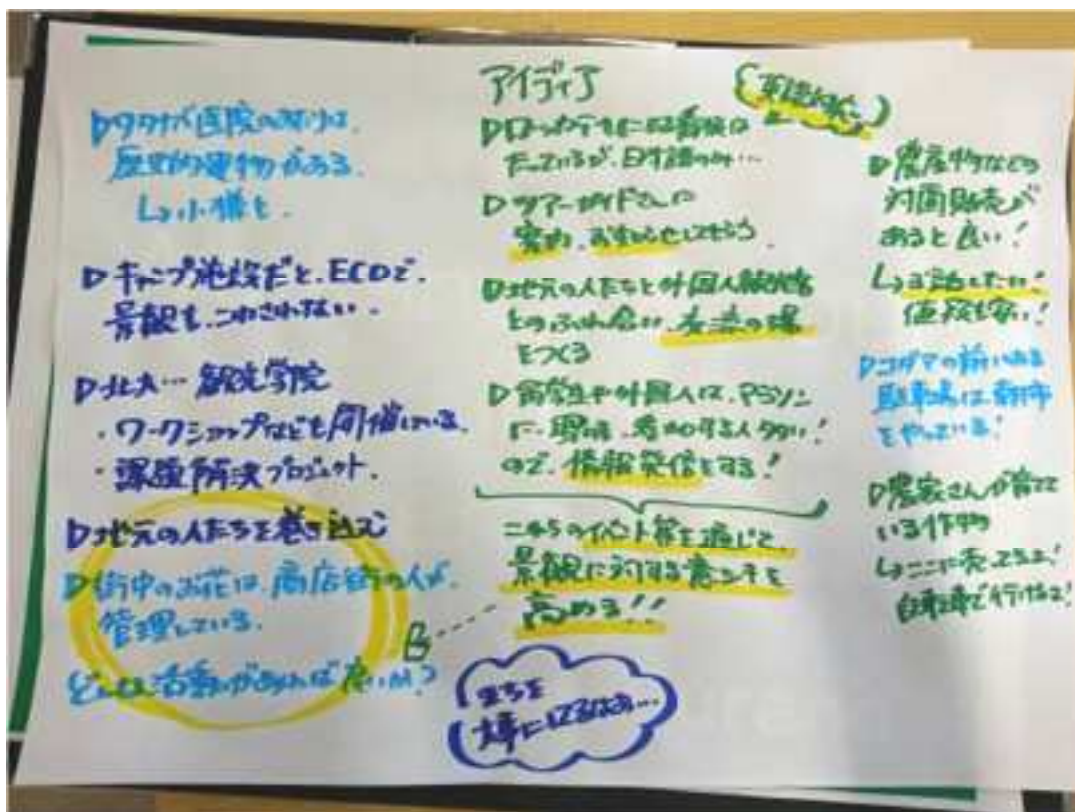 ▷タカハバ医院の辺りは、
歴史的建物がある。
↳小樽も
▷キャンプ施設だと、ECOで、
景観も、こわされない。
▷北大… 観光学院
・ワークショップなども開催している。
・課題解決プロジェクト。
▷地元の人たちを巻き込む
▷街中のお花は、商店街の人が、
管理している。
どんな活動があれば良いか?
アイディア
看板は
たっているが、日本語のみ…
▷ツアーガイドさんに
案内、お知らせしてもらう
▷地元の人たちと外国人観光客
とのふれ合い、交流の場
をつくる
▷留学生や外国人は、マラソン
に、興味、参加する人多い!
ので、情報発信をする!
これらのイベント等を通じて、
景観に対する意シキを
高める!!
B
まちを
大事にしてるなぁ…
▷農産物などの
対面販売が
あると良い!
↳会話したい!
値段も安い!
▷コダマの前にある
駐車場は朝市
をやっている!
▷農家さんが育てて
いる作物
↳ここに売ってるよ!
自転車で行けるよ!